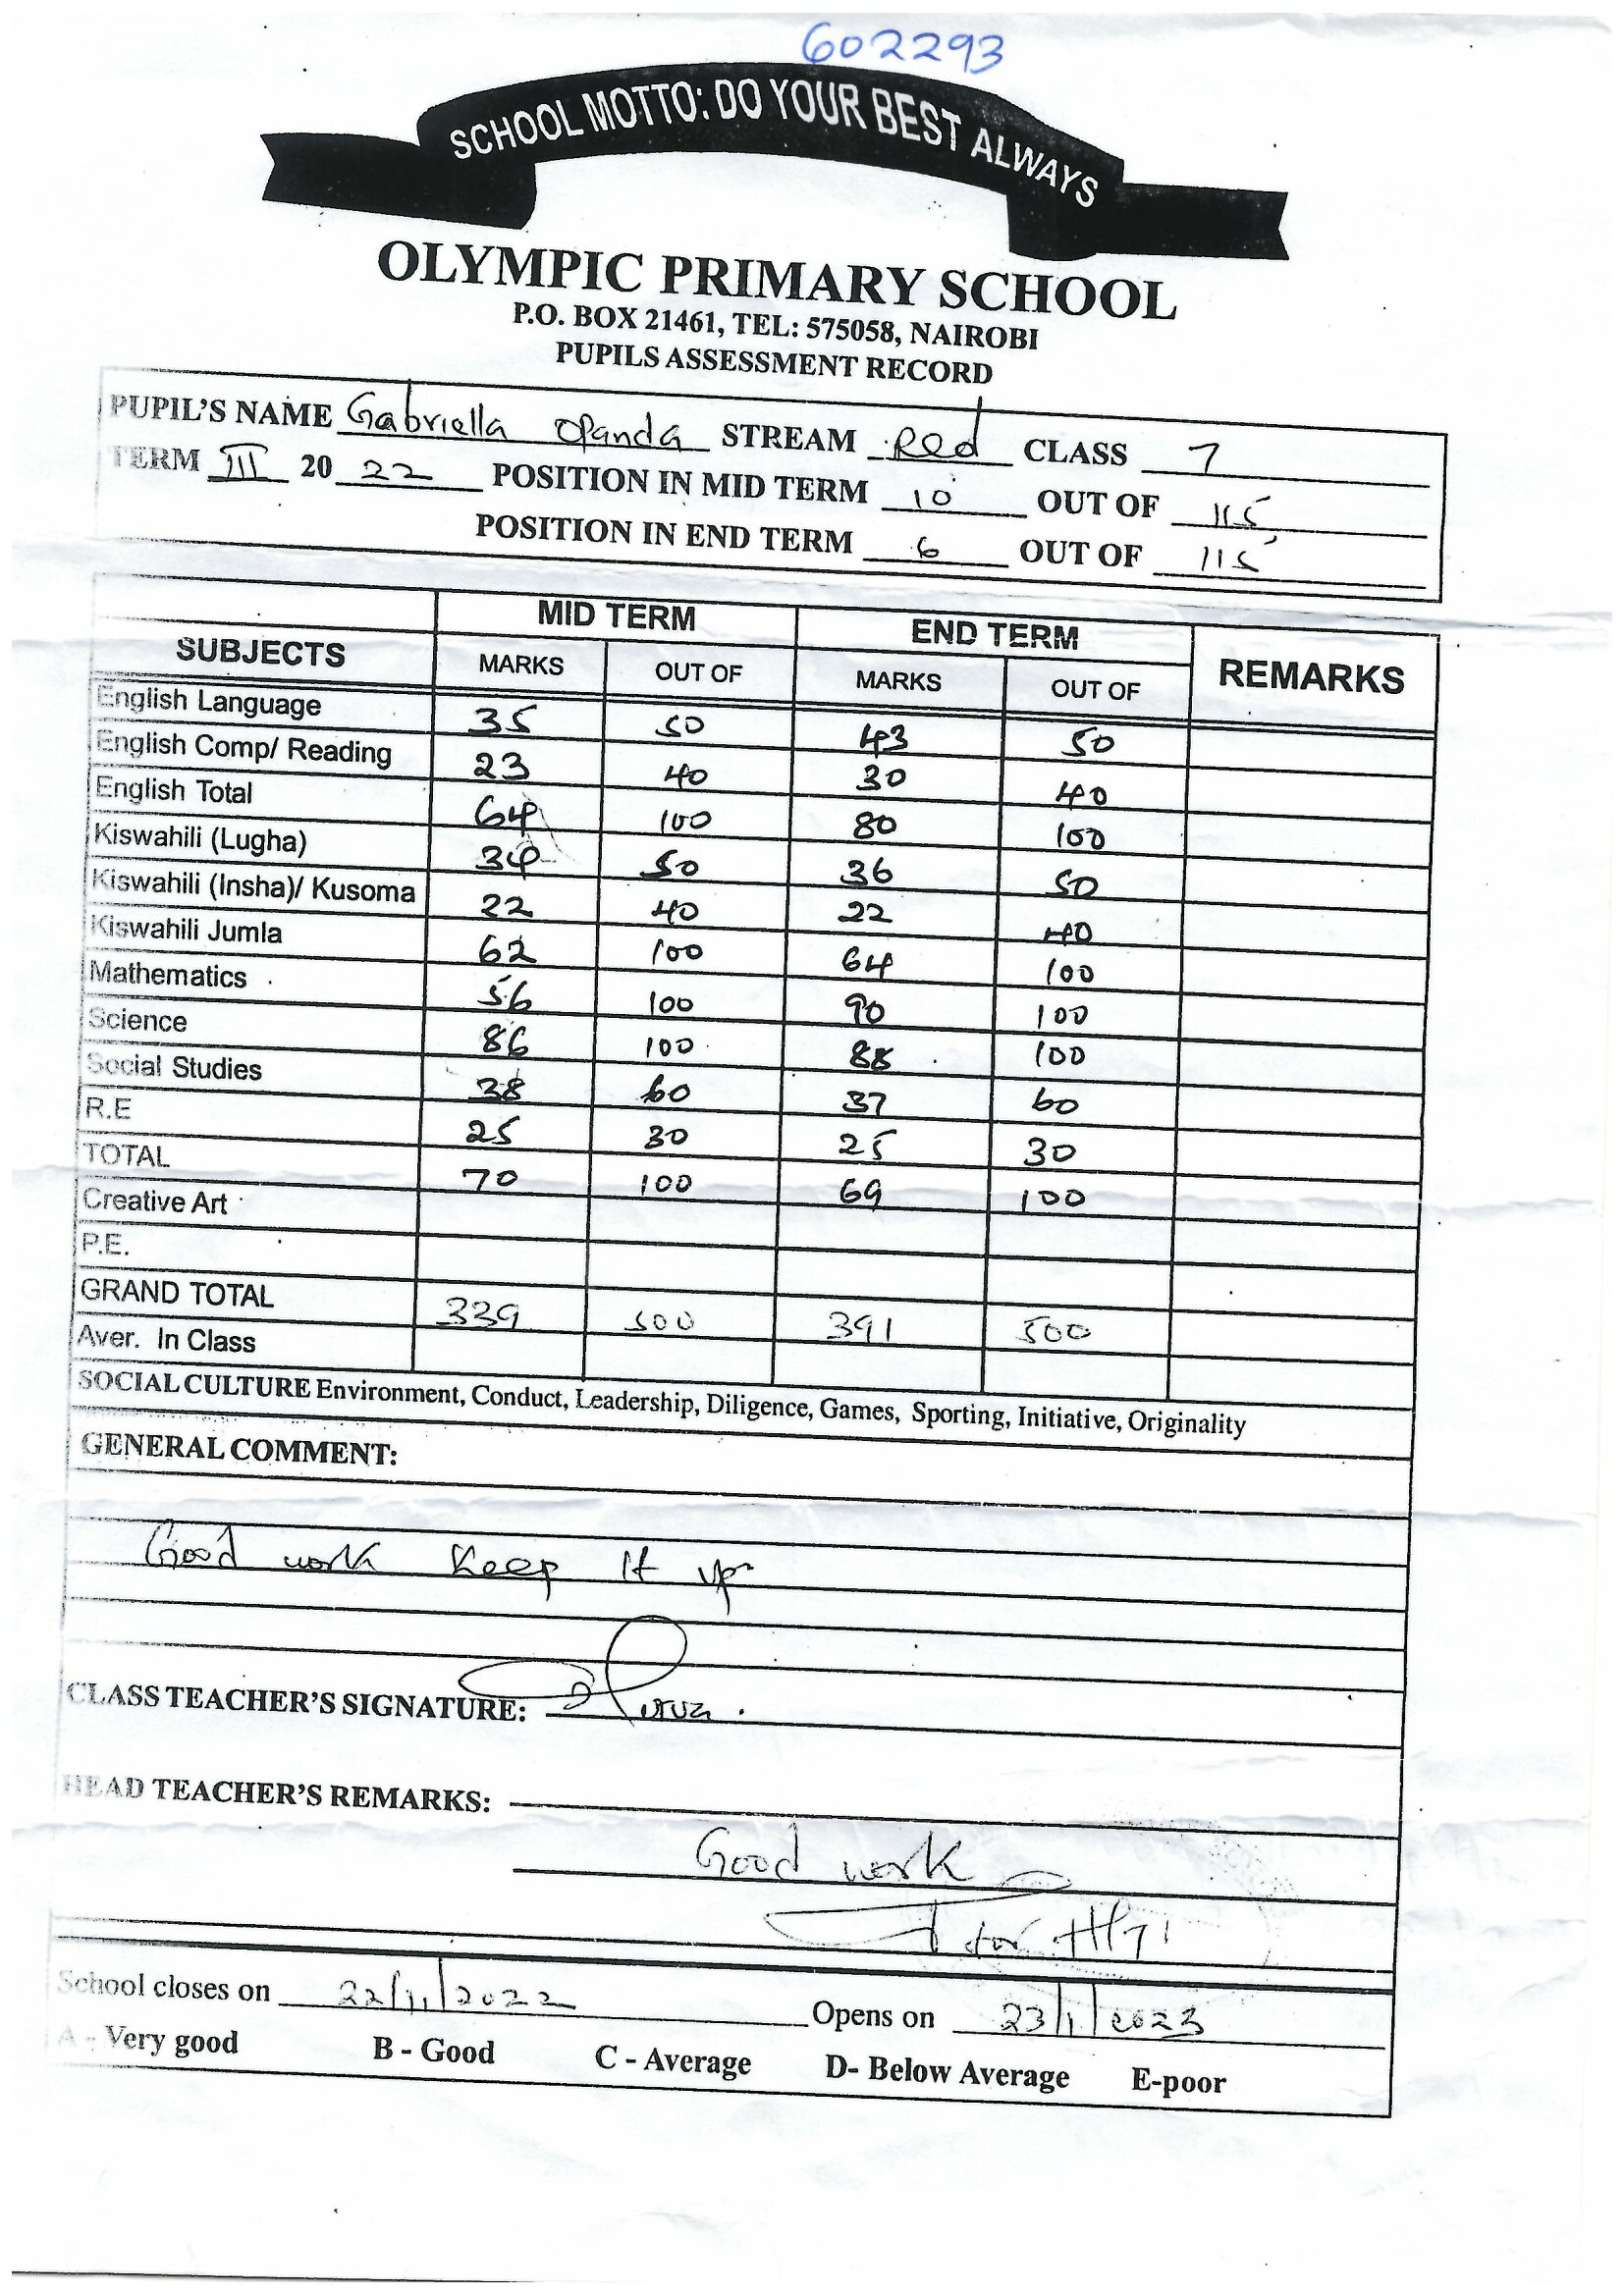 602293
SCHOOL MOTTO: DO YOUR BEST ALWAYS
OLYMPIC PRIMARY SCHOOL
P.O. BOX 21461, TEL: 575058, NAIROBI
PUPILS ASSESSMENT RECORD
PUPIL'S NAME Gabriella Opanda STREAM Red CLASS 7
TERM III 20 22 POSITION IN MID TERM 10 OUT OF 115
POSITION IN END TERM 6 OUT OF 115
MID TERM END TERM
SUBJECTS MARKS OUT OF MARKS OUT OF REMARKS
English Language 35 50 43 50
English Comp/ Reading 23 40 30 40
English Total 64 100 80 100
Kiswahili (Lugha) 34 50 36 50
Kiswahili (Insha)/ Kusoma 22 40 22 40
Kiswahili Jumla 62 100 64 100
Mathematics 56 100 90 100
Science 86 100 88 100
Social Studies 38 60 37 60
R.E 25 30 25 30
TOTAL 70 100 69 100
Creative Art
P.E.
GRAND TOTAL 339 500 391 500
Aver. In Class
SOCIAL CULTURE Environment, Conduct, Leadership, Diligence, Games, Sporting, Initiative, Originality
GENERAL COMMENT:
Good work keep It up
CLASS TEACHER'S SIGNATURE:
HEAD TEACHER'S REMARKS:
Good work
for H/T
School closes on 22/11/2022 Opens on 23/1/2023
A - Very good B - Good C - Average D- Below Average E-poor